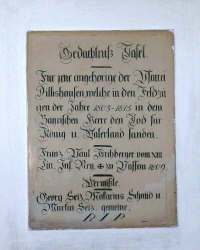 Gedächtniß Tafel.
Für jene angehörige der Pfarrei
Dillishausen welche in den Feldzü
gen der Jahre 1805-1815 in dem
Bayrischen Heere den Tod für
König u Vaterland fanden.
Franz Paul Kirchberger vom XIII
Lin. Inf. Reg. zu Passau 1809
Vermißte.
Georg Seiz Makarius Schmid u
Markus Seiz gemeine.
R. I. P.